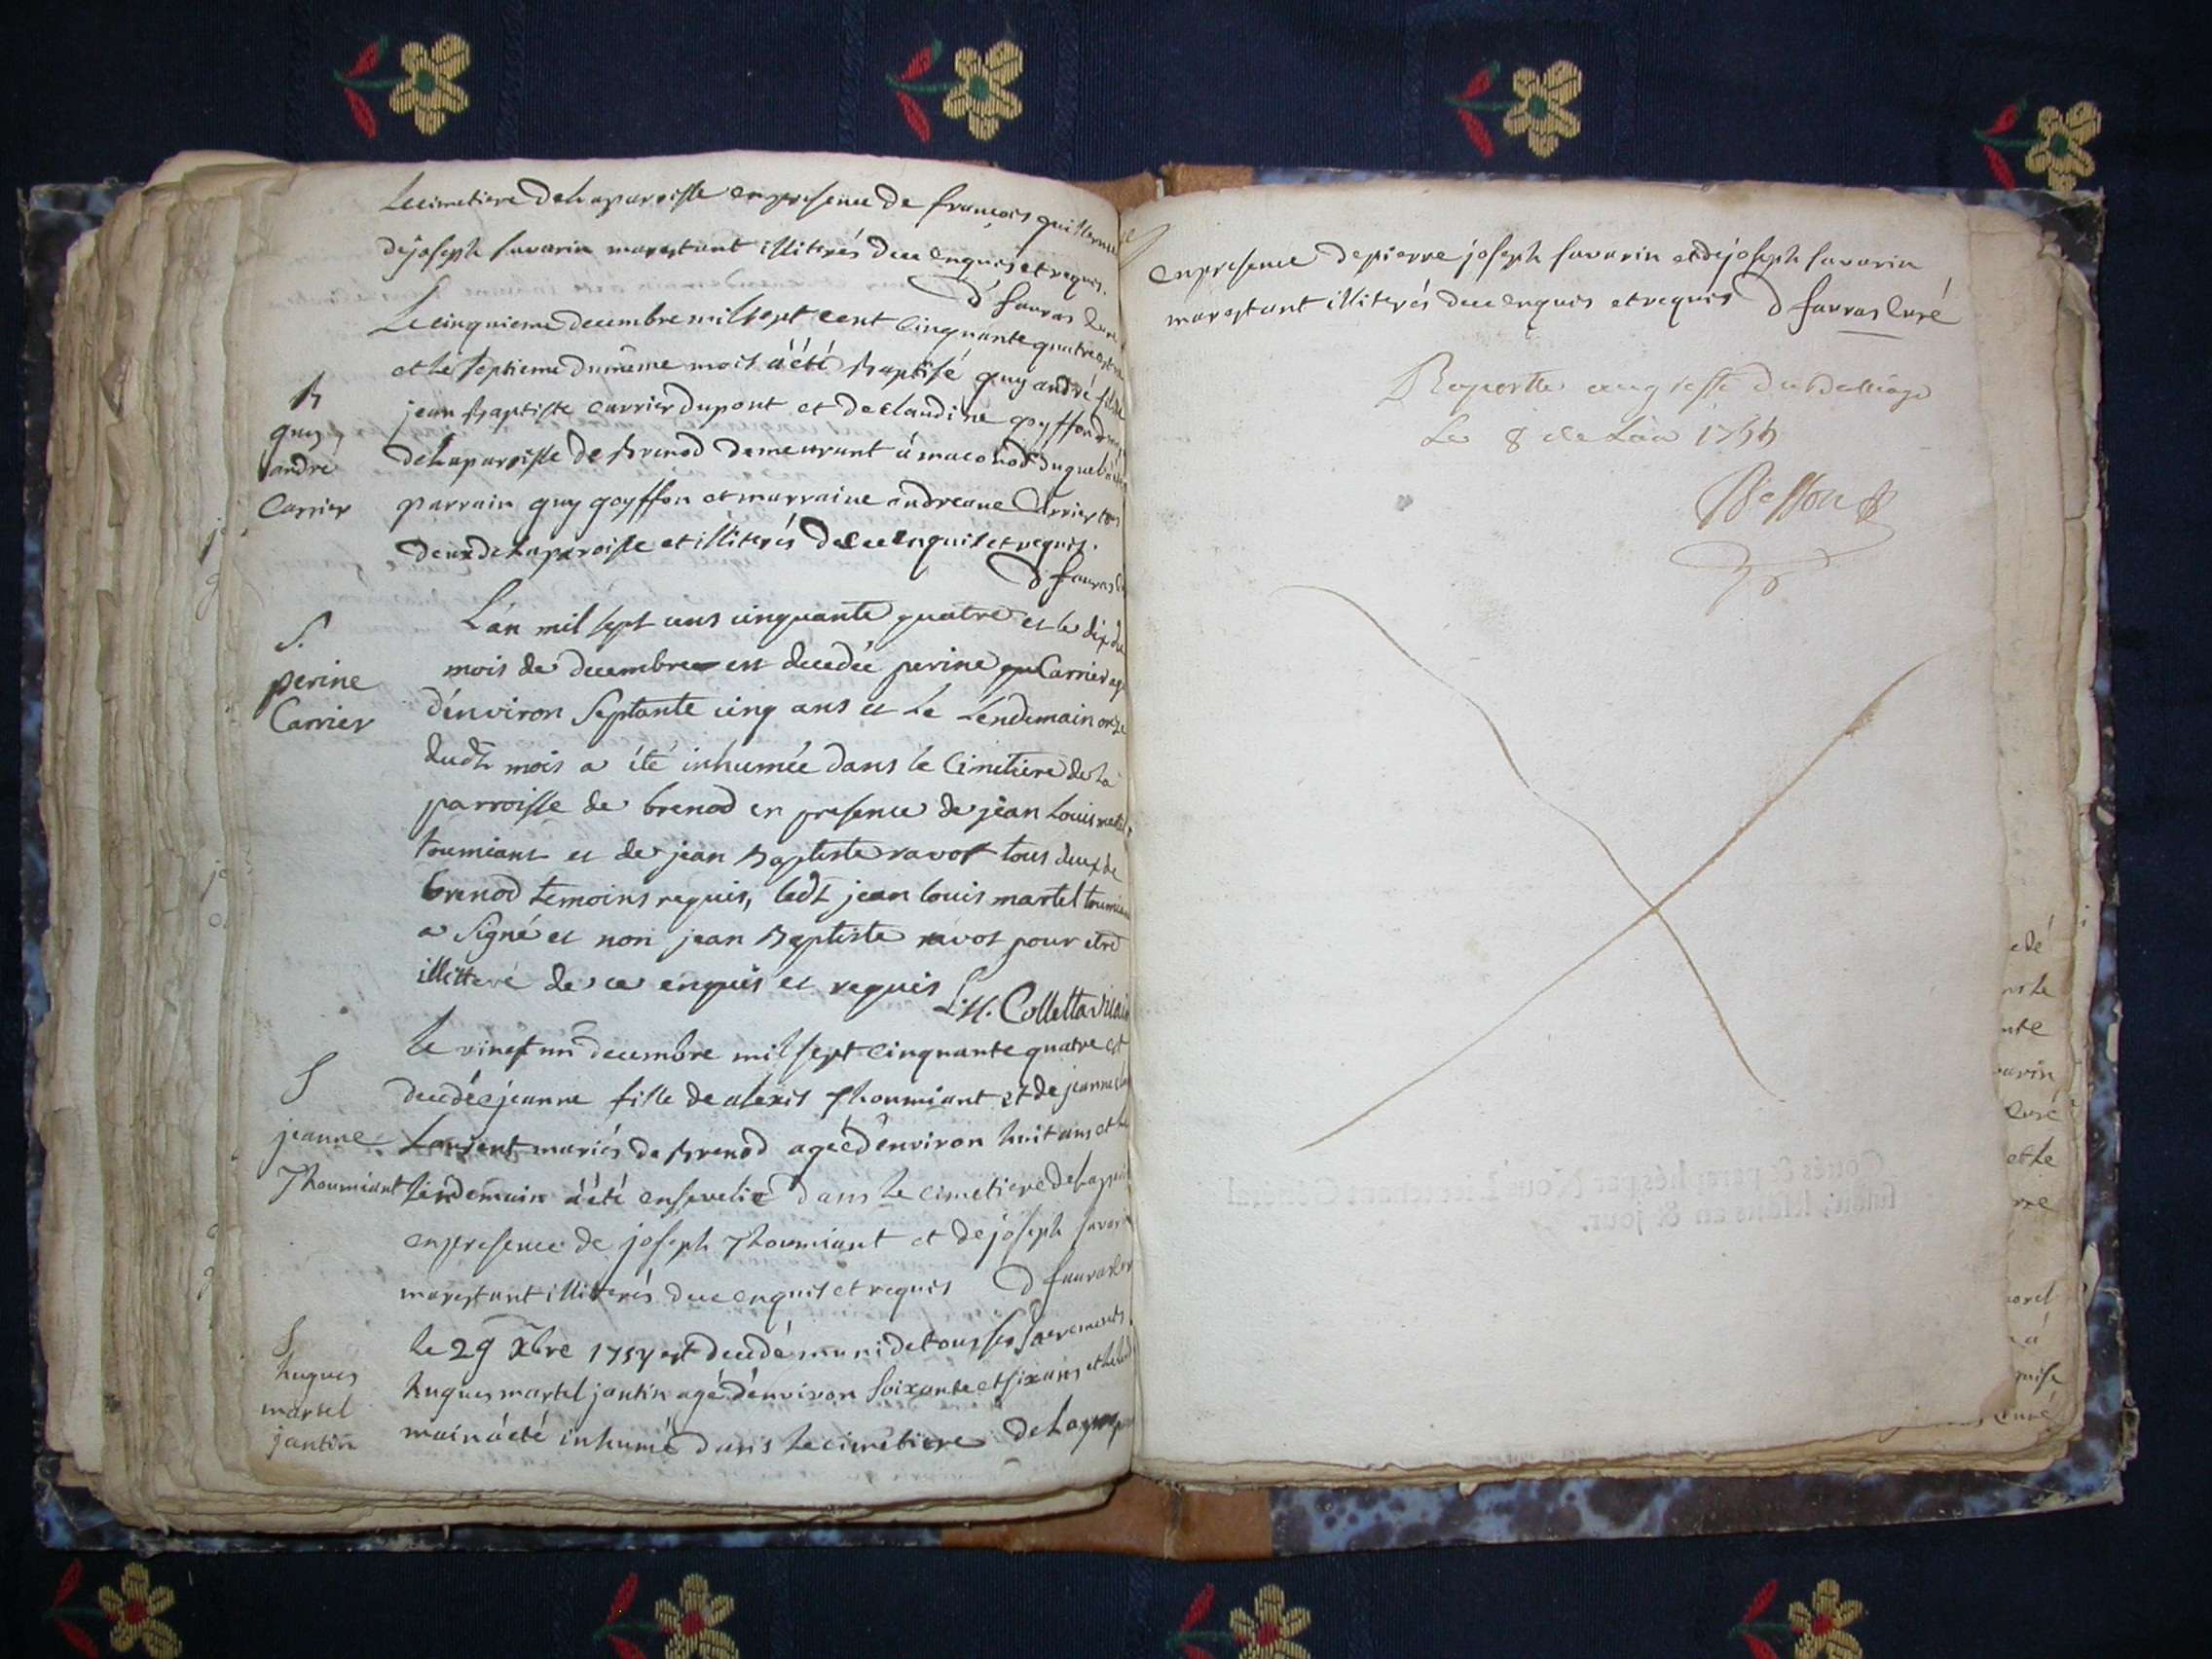 Le cimetiere de la paroisse en presence de françois guillerme
de joseph savarin marestant illiterés de ce enquis et requis.
D favras Curé
Le cinquieme decembre mil sept cent cinquante quatre est né
et le septieme du même mois a été baptisé guy andré fils de
jean baptiste carrier dupont et de claudine goyffon
de la paroisse de brenod demeurant à maconod duquel a été
parrain guy goyffon et marraine andreane Carrier tous
deux de la paroisse et illiterés de ce enquis et requis.
D favras
B
guy
andré
Carrier
L'an mil sept cens cinquante quatre et le dix du
mois de decembre est decedée perine Carrier agée
d'environ septante cinq ans et le lendemain onze
dudt mois a été inhumée dans le Cimetiere de la
parroisse de brenod en presence de jean Louis martel
toumiant et de jean Baptiste ravot tous deux de
brenod temoins requis, ledt jean louis martel toumiant
a signé et non jean Baptiste ravot pour etre
illitteré de ce enquis et requis L.H. Collettaz
S.
perine
Carrier
le vingt un decembre mil sept cinquante quatre est
decedée jeanne fille de alexis Thoumiant et de jeanne
Laurent mariés de brenod agée d'environ huit ans et le
lendemain a été ensevelie dans le cimetiere de la
en presence de joseph Thoumiant et de joseph savarin
marestant illiterés de ce enquis et requis D favras
S
jeanne
Thoumiant
le 29 xbre 1754 est decedé muni de tous ses sacremens
hugues martel jantin agé d'environ soixante et six ans et le lende
main a été inhumé dans le cimetiere de la
S
hugues
martel
jantin
en presence de pierre joseph savarin et de joseph savarin
marestant illiterés de ce enquis et requis D favras Curé
Raporté au greffe du Bailliage
Le 8 de
Besson
edé
savarin
Curé
et le
Curé
Cottés & paraphés par Nous Lieutenant Général
susdit, lesdits an & jour.